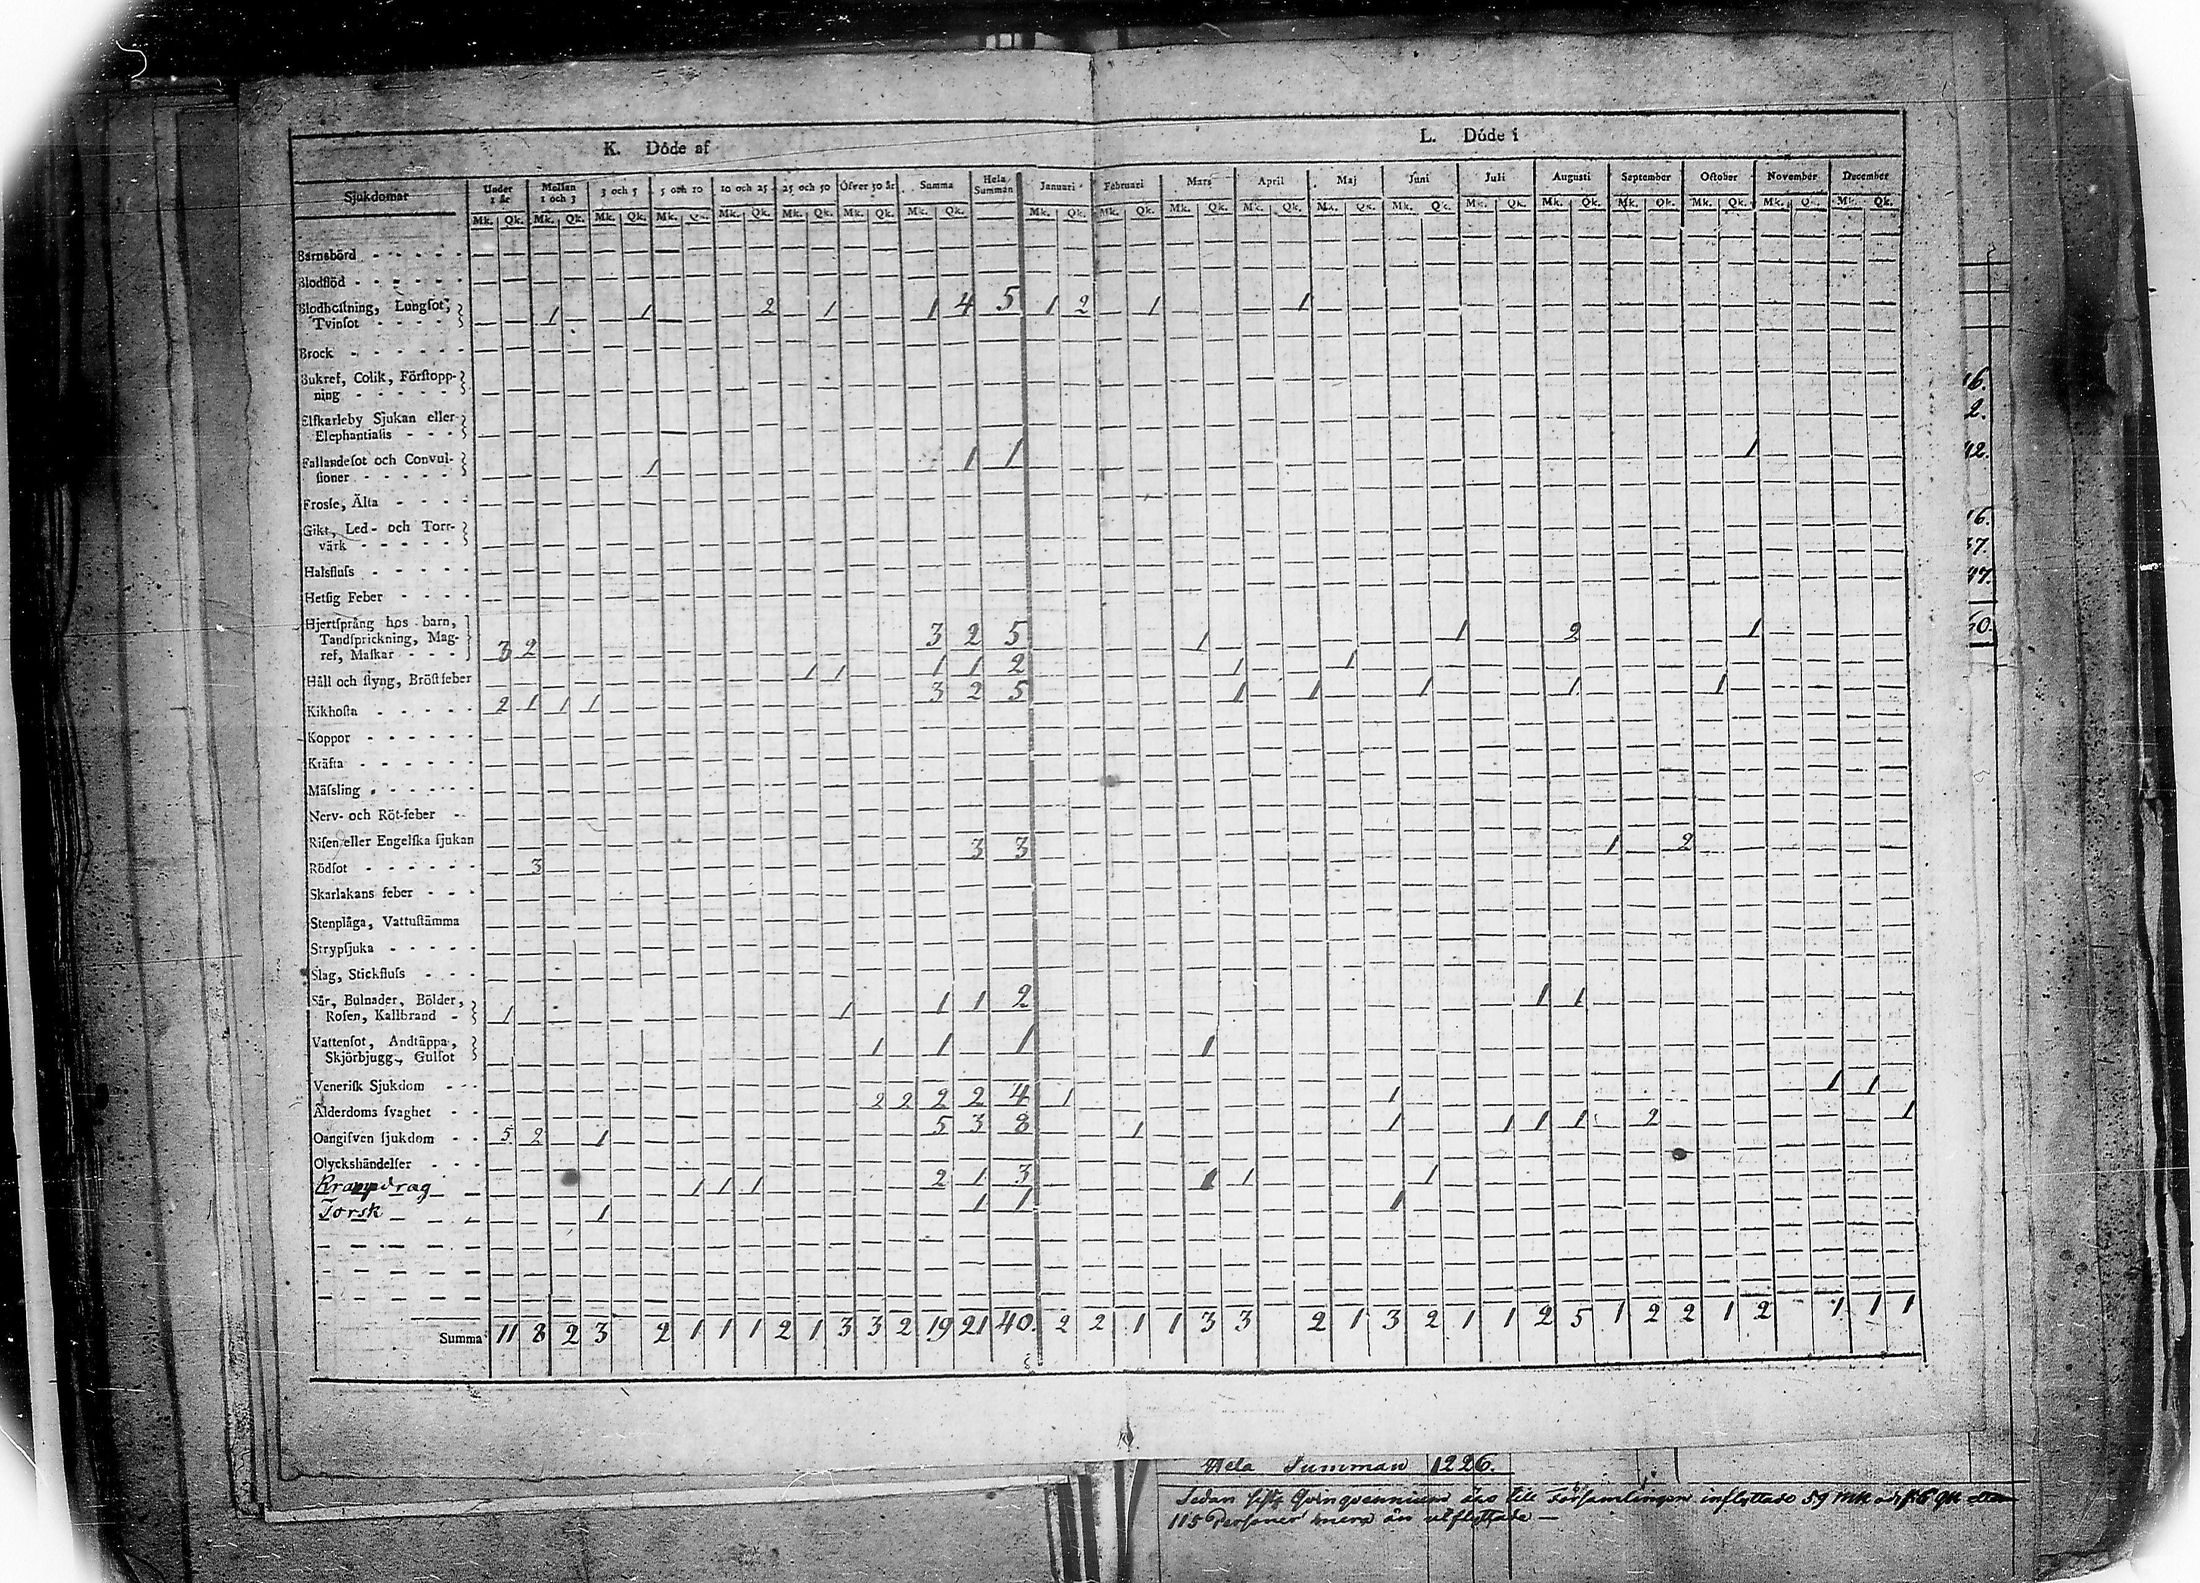 K. Döde af
L. Döde i
Sjukdomar | Under 1 år | Mellan 1 och 3 | 3 och 5 | 5 och 10 | 10 och 25 | 25 och 50 | Öfver 50 år | Summa | Hela Summan | Januari | Februari | Mars | April | Maj | Juni | Juli | Augusti | September | October | November | December
Mk. Qk. Mk. Qk. Mk. Qk. Mk. Qk. Mk. Qk. Mk. Qk. Mk. Qk. Mk. Qk. Mk. Qk. Mk. Qk. Mk. Qk. Mk. Qk. Mk. Qk. Mk. Qk. Mk. Qk. Mk. Qk. Mk. Qk. Mk. Qk. Mk. Qk. Mk. Qk.
Barnsbörd - - - - -
Blodflöd - - - - -
Blodhostning, Lungsot,
Tvinsot - - - - 1 1 2 1 1 4 5 1 2 1 1
Brock - - - - - -
Bukref, Colik, Förstopp-
ning - - - - -
Elfkarleby Sjukan eller
Elephantiasis - - -
Fallandesot och Convul-
sioner - - - - - 1 1 1 1
Frosse, Älta - - - -
Gikt, Led- och Torr-
värk - - - - -
Halsfluss - - - - -
Hetsig Feber - - - -
Hjertsprång hos barn,
Tandsprickning, Mag-
ref, Maskar - - - 3 2 3 2 5 1 1 2 1
Håll och styng, Bröstfeber 1 1 1 1 2 1 1
Kikhosta - - - - - 2 1 1 1 3 2 5 1 1 1 1 1
Koppor - - - - - -
Kräfta - - - - - -
Mässling - - - - - -
Nerv- och Röt-feber - -
Risen eller Engelska sjukan
Rödsot - - - - - - 3 3 3 1 2
Skarlakans feber - - -
Stenplåga, Vattustämma
Strypsjuka - - - - -
Slag, Stickfluss - - -
Sår, Bulnader, Bölder,
Rosen, Kallbrand - 1 1 1 1 2 1 1
Vattensot, Andtäppa,
Skjörbjugg, Gulsot 1 1 1 1
Venerisk Sjukdom - - -
Ålderdoms svaghet - - 2 2 2 2 4 1 1 1 1
Oangifven sjukdom - - 5 2 1 5 3 8 1 1 1 1 1 2 1
Olyckshändelser - - -
Krampdrag 1 1 1 2 1 3 1 1 1
Torsk 1 1 1 1
Summa 11 8 2 3 2 1 1 1 2 1 3 3 2 19 21 40. 2 2 1 1 3 3 2 1 3 2 1 1 2 5 1 2 2 1 2 1 1 1
16.
2.
42.
16.
37.
47.
Hela Summan 1226.
Sedan sista Qvinqvennium äro till Församlingen inflyttade 59 Mk och 56 Qk
115 Personer mera än utflyttade —